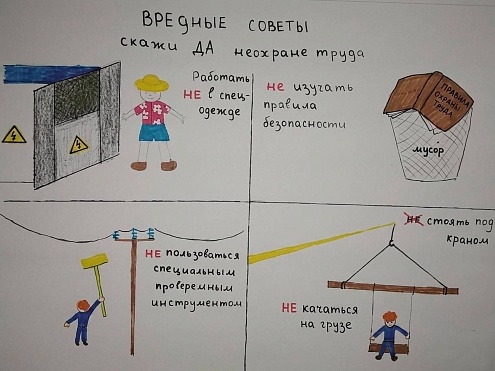 ВРЕДНЫЕ СОВЕТЫ
скажи ДА неохране труда
Работать
НЕ в спец-
одежде
не изучать
правила
безопасности
ПРАВИЛА
ОХРАНЫ
ТРУДА
мусор
НЕ пользоваться
специальным
проверемным
инструментом
НЕ стоять под
краном
НЕ качаться
на грузе